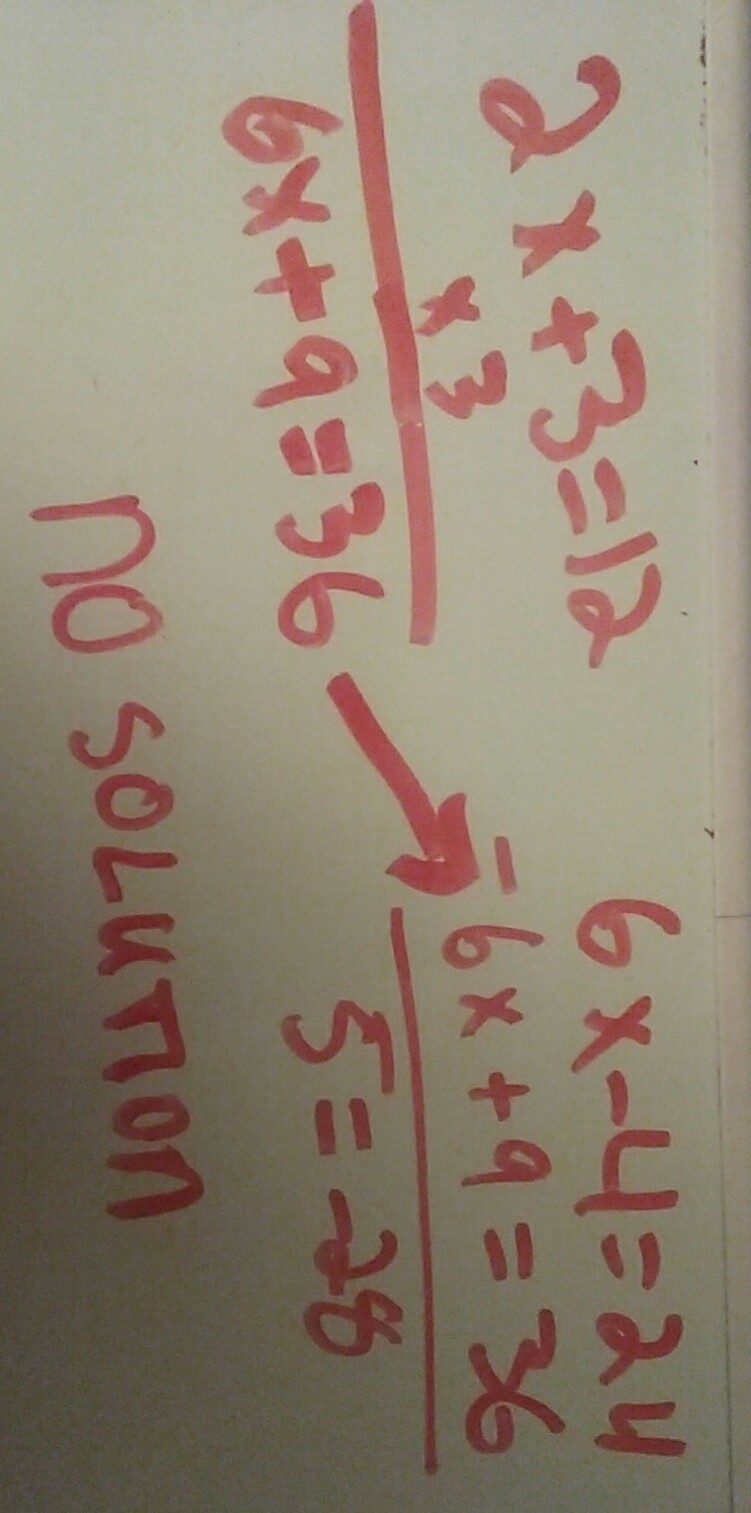 2x+3=12
x3
6x+9=36
6x-4=24
-6x+9=36
5=-28
no solution